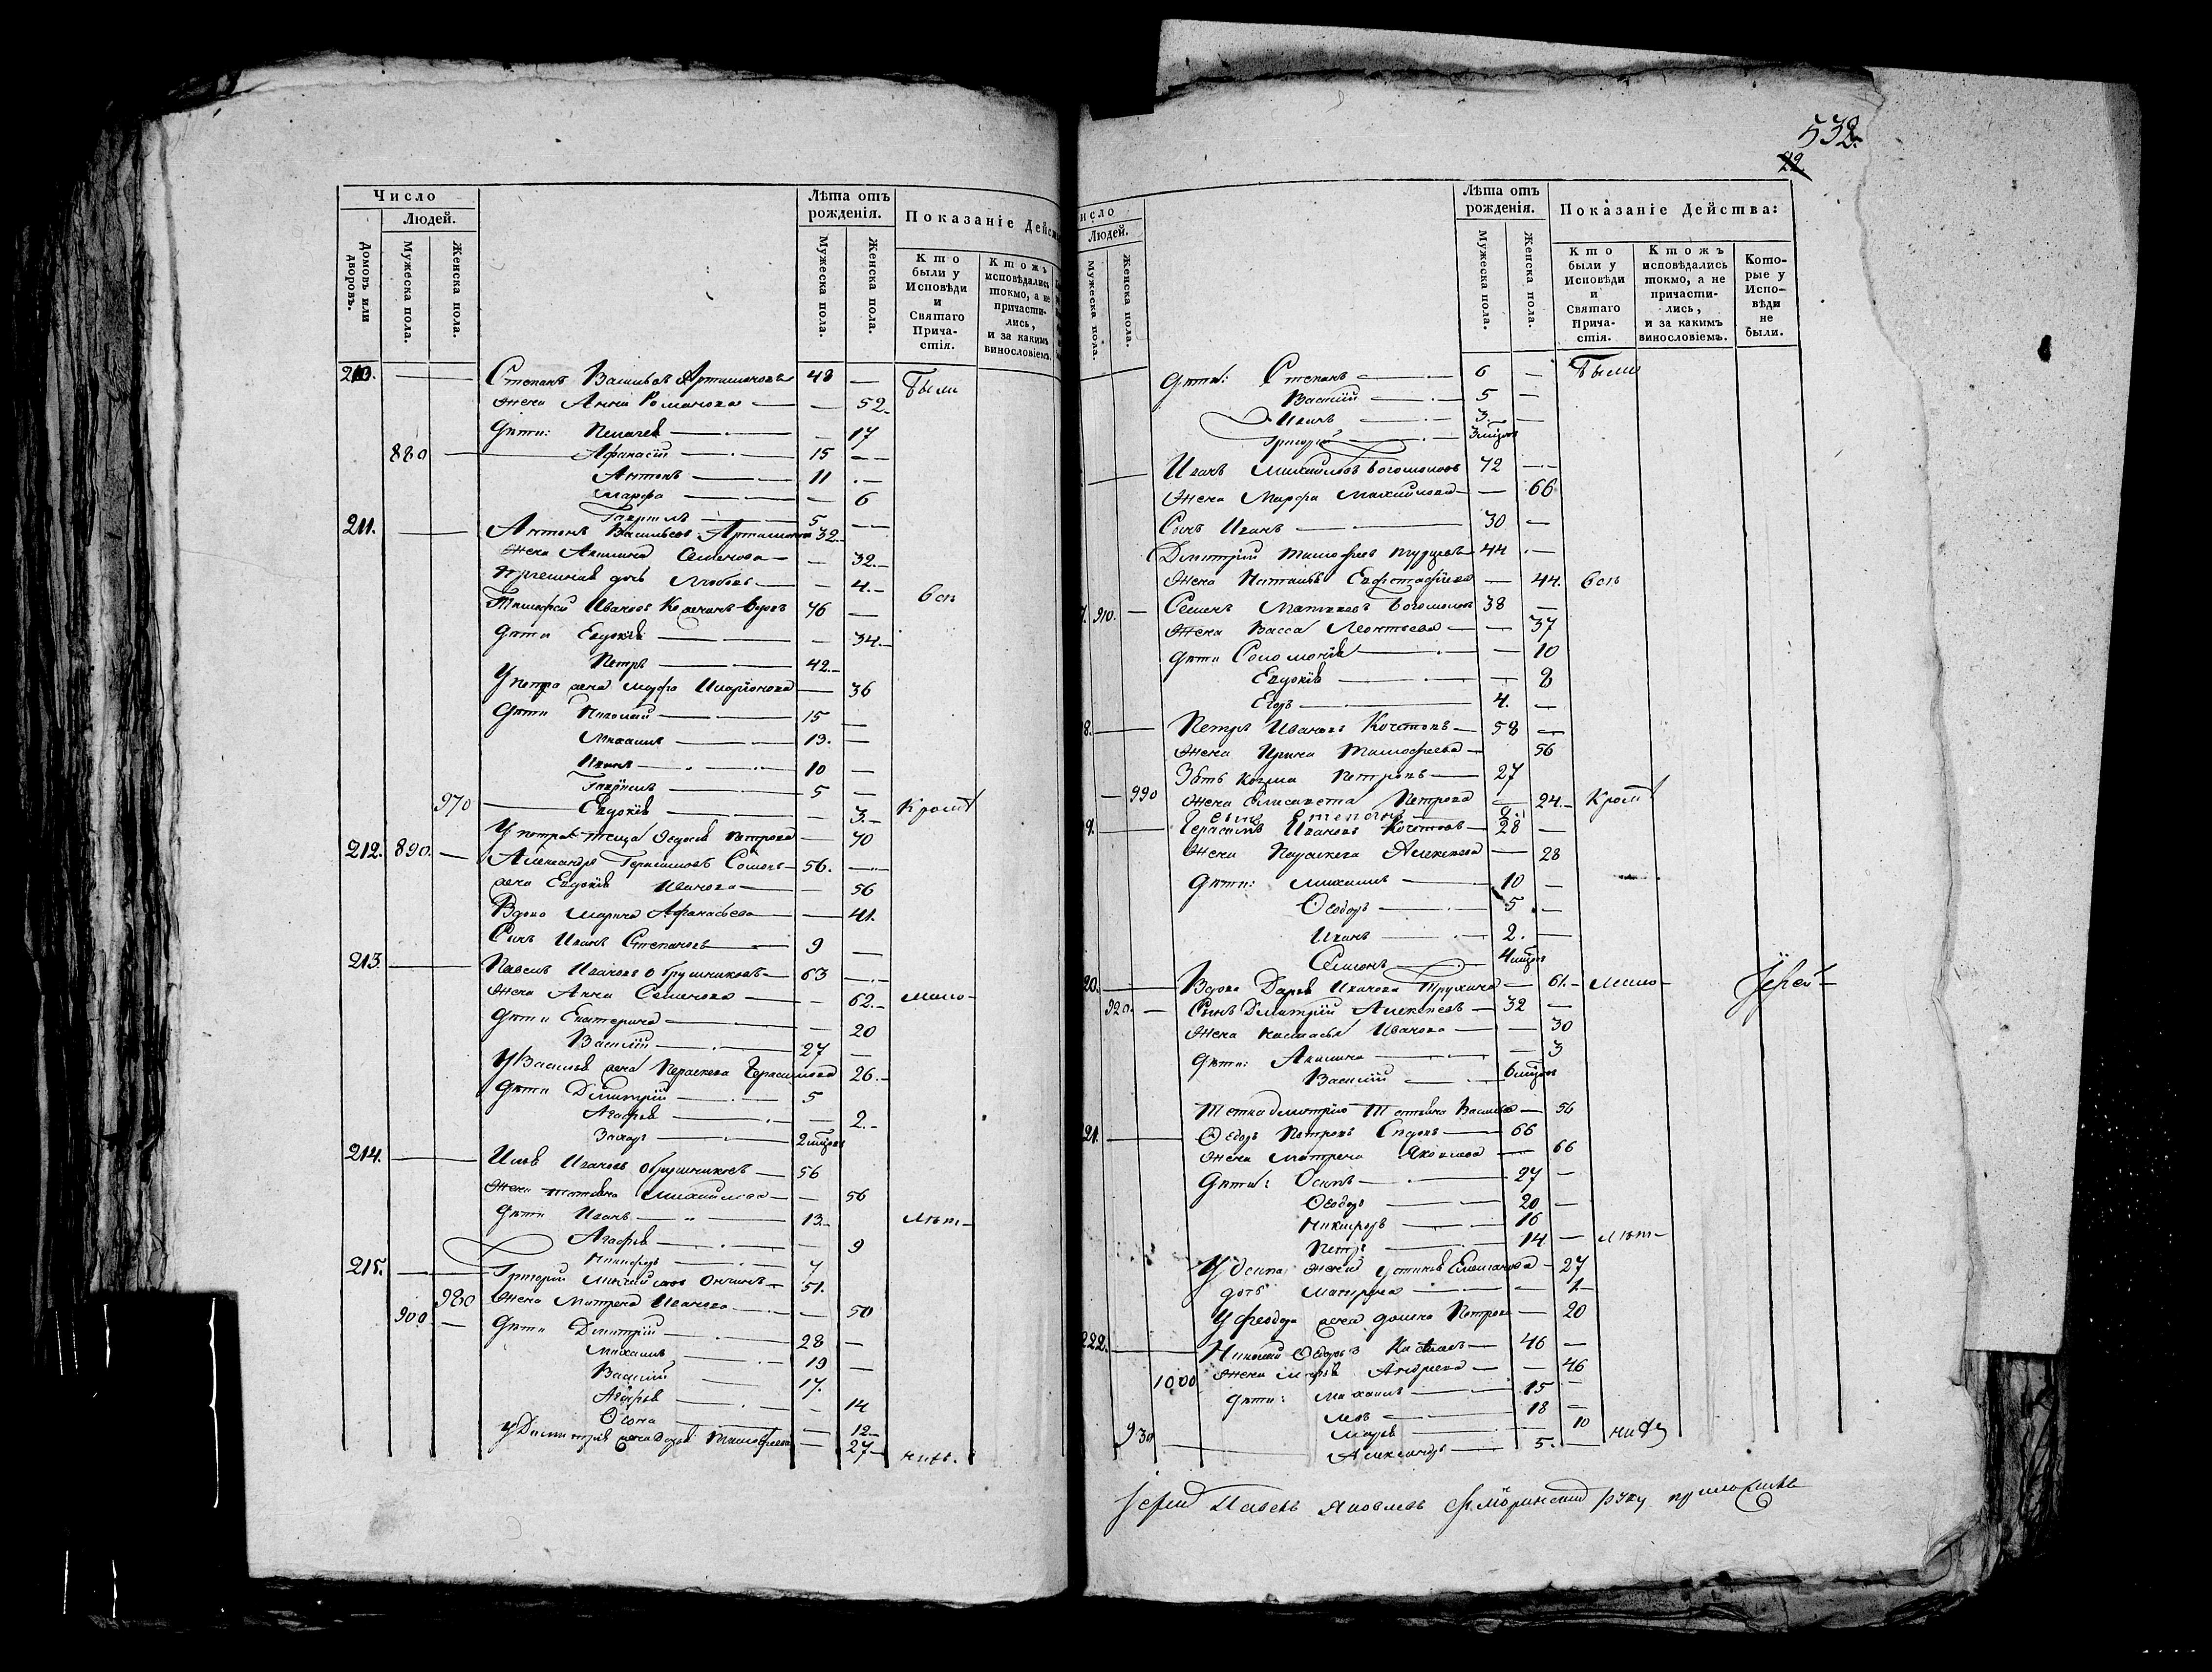 Число
Людей.
Домовъ или дворовъ.
Мужеска пола.
Женска пола.
Лѣта отъ рожденія.
Мужеска пола.
Женска пола.
Показаніе Дейс
Кто были у Исповѣди и Святаго Прича-стія.
Ктожъ исповѣдались токмо, а не причасти-лись, и за какимъ винословіемъ.
210. Степанъ Васильевъ Артамоновъ 48 — Были
жена Анна Романова — 52
Дѣти: Пелагея — 17
880 Афанасій 15 —
Антонъ 11 —
Марфа — 6
Гавріилъ 5 —
211. Антонъ Васильевъ Артамоновъ 32
жена Акилина Семенова — 32
дочь Любовь — 4
Тимофей Ивановъ 76 — вси
Дѣти Евдокія — 34
Петръ 42
У Петра жена Марфа Иларіонова — 36
Дѣти Николай 15 —
Михаилъ 13. —
Иванъ 10 —
Гавріилъ 5 —
970 Евдокія — 3 Кромѣ
У Петра теща Федосія Петрова — 70
212. 890. Александръ Герасимовъ 56. —
жена Евдокія Иванова — 56
Вдова Марина Афанасьева — 41
Сынъ Иванъ Степановъ 9 —
213. Павелъ Ивановъ Обрушниковъ 63 —
жена Анна Семенова — 62. мало-
Дѣти Екатерина — 20
Василій 27 —
У Василья жена Параскева Герасимова 26.
Дѣти Димитрій 5
Агафья — 2.
Захаръ 2 мѣсяц
214. Илья Ивановъ Обрушниковъ 56
жена Татьяна Михайлова — 56
Дѣти Иванъ 13. лѣт-
Агафья — 9
Никифоръ 7
215. Григорій Михайловъ 51.
980 жена Матрена Иванова — 50
900 Дѣти Дмитрій 28 —
Михаилъ 19 —
Василій 17.
Агафья — 14
Ѳекла — 12
У Димитрія жена Дарья Тимофеева — 27 нихъ.
532.
22.
исло
Людей.
Мужеска пола.
Женска пола.
Лѣта отъ рожденія.
Мужеска пола.
Женска пола.
Показаніе Действа:
Кто были у Исповѣди и Святаго Прича-стія.
Ктожъ исповѣдались токмо, а не причасти-лись, и за какимъ винословіемъ.
Кото-рые у Испо-вѣди не были.
Дѣти: Степанъ 6 — Были
Василій 5 —
Иванъ 3. —
Григорій 3 мѣсяц
Иванъ Михайловъ Богомоловъ 72 —
жена Марфа Михайлова — 66
Сынъ Иванъ 30 —
Дмитрій Тимофеевъ 44 —
жена Наталья Евстафіева — 44. вси
7. 910. Семенъ Матвѣевъ Богомоловъ 38 —
жена Васса Леонтьева — 37
Дѣти Соломонія — 10
Евдокія — 8
Егоръ 4. —
8. Петръ Ивановъ Кочетовъ 58 —
жена Ирина Тимофеева 56
Зять Козма Петровъ 27
990 жена Елисавета Петрова — 24. Кромѣ
сынъ Степанъ 2.
9. Герасимъ Ивановъ Кочетовъ 28 —
жена Параскева Алексеева — 28
Дѣти: Михаилъ 10 —
Ѳеодоръ 5 —
Иванъ 2. —
Семенъ 4 мѣсяц
20. Вдова Дарья Иванова Трухина — 61. мало- Іерей-
920. Сынъ Димитрій Алексеевъ 32 —
жена Настасья Иванова — 30
Дѣти: Акилина — 3
Василій 6 мѣсяц
Тетка Дмитрію Татьяна Васильева — 56
21. Ѳедоръ Петровъ 66
жена Матрена Яковлева — 66
Дѣти: Осипъ 27 —
Ѳеодоръ 20 —
Никифоръ 16
Петръ 14 — лѣт-
У Осипа жена Устинья Емельянова 27
дочь Матрена — 1
У Феодора жена Домна Петрова 20
222. Николай Ѳедоровъ 46 —
1000 жена Марья Андреева — 46
Дѣти: Михаилъ 15 —
Левъ 18 —
Марья 10
930 Александръ 5. — нихъ
Іерей Павелъ Яковлевъ руку приложилъ